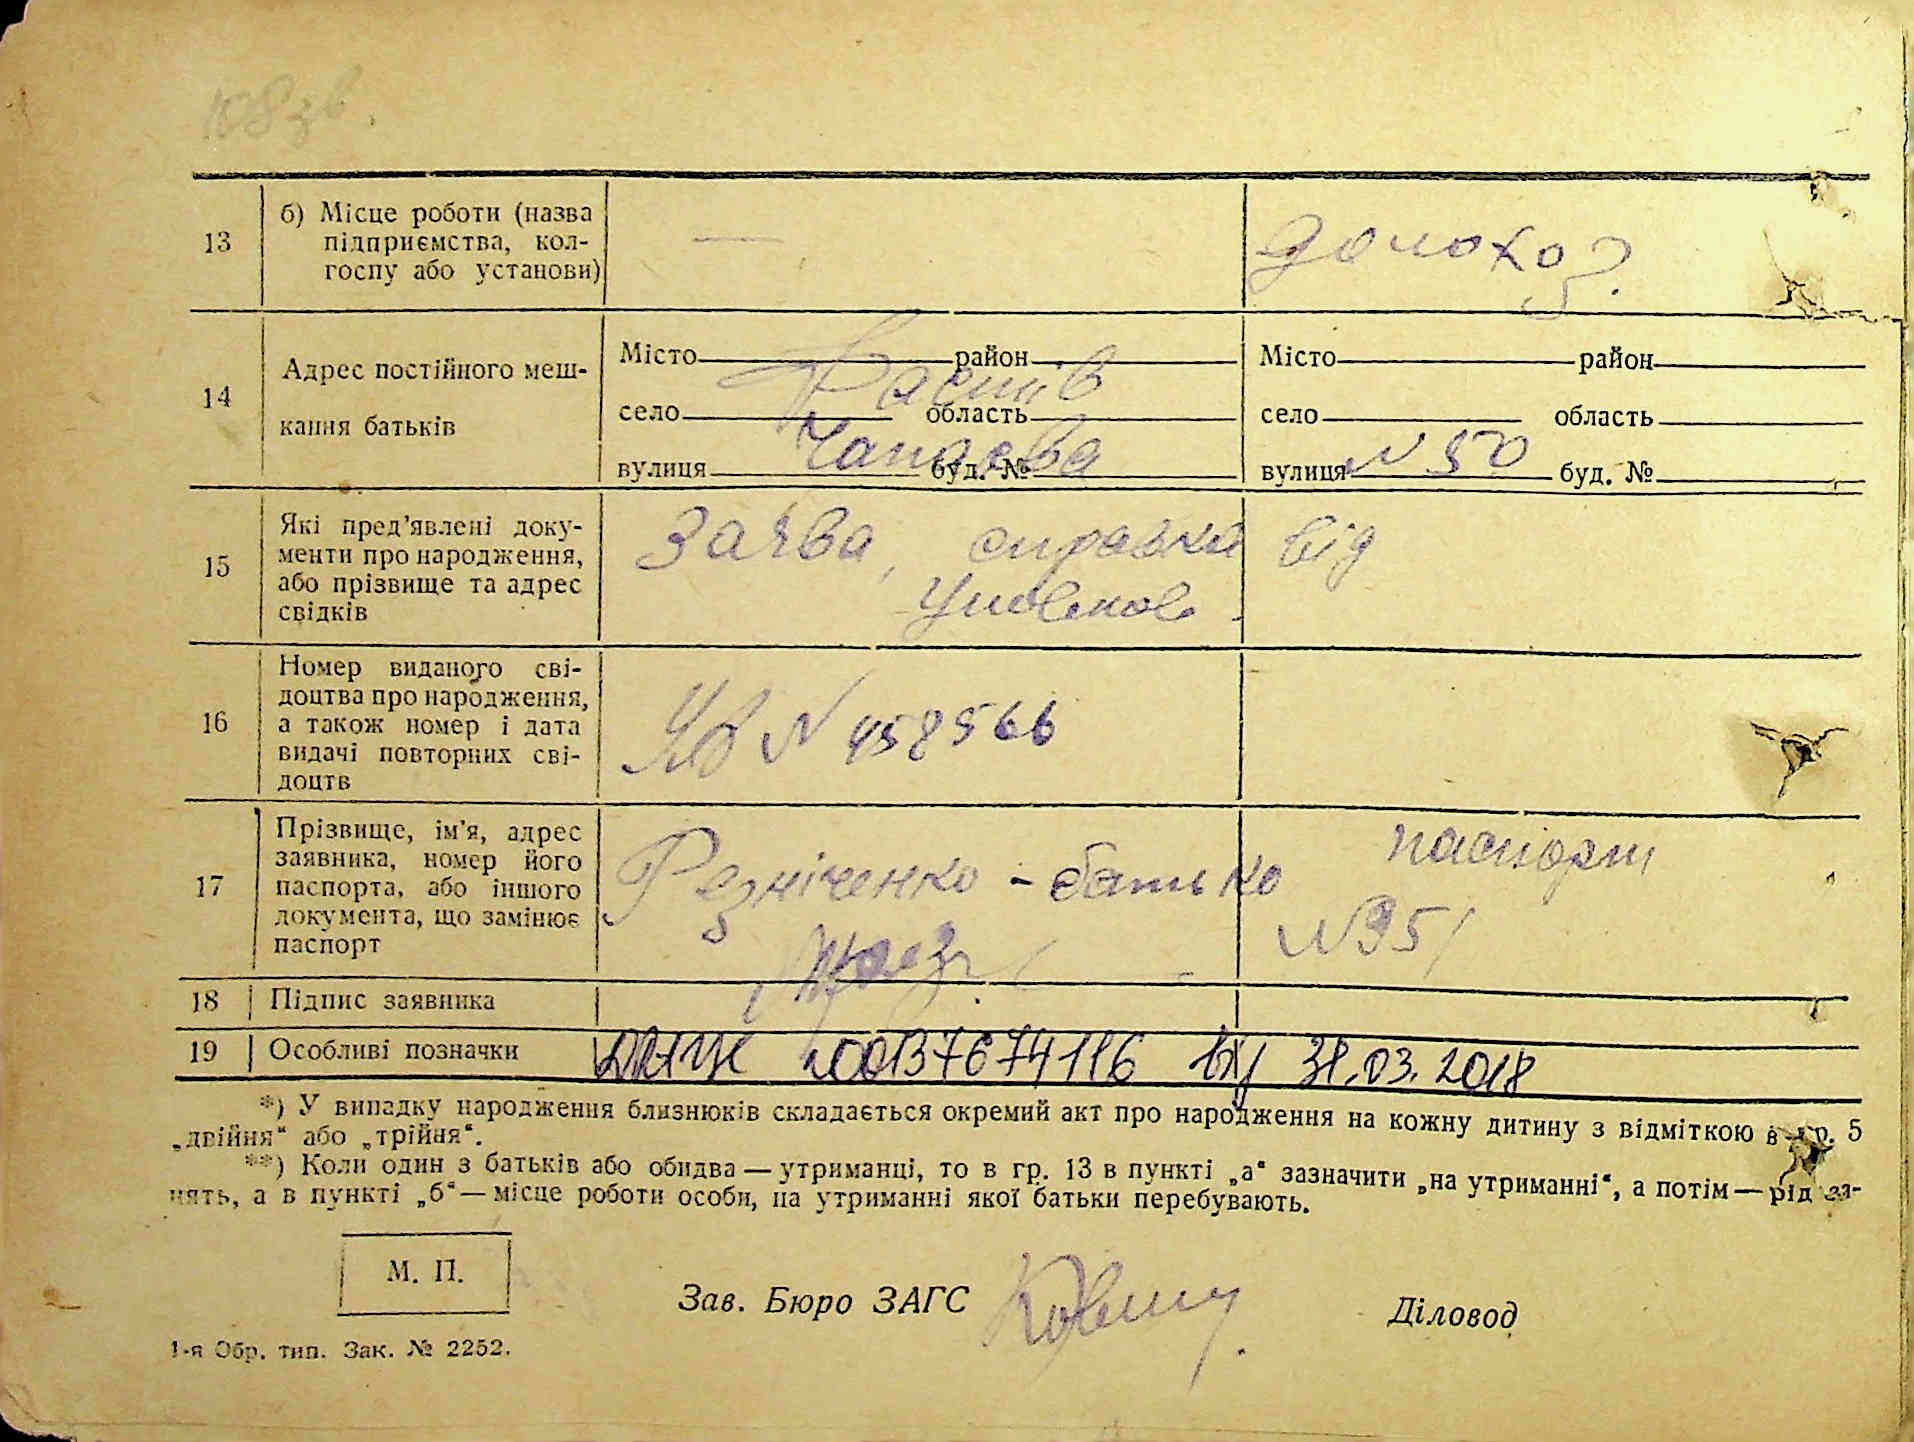 108 зв.
13
б) Місце роботи (назва
підприємства, кол-
госпу або установи)
—
домохоз.
14
Адрес постійного меш-
кання батьків
Місто район
Фастів
село область
вулиця буд. №
Чапаєва
Місто район
село область
вулиця буд. №
N 50
15
Які пред’явлені доку-
менти про народження,
або прізвище та адрес
свідків
Заява, справка від
16
Номер виданого сві-
доцтва про народження,
а також номер і дата
видачі повторних сві-
доцтв
N 458566
17
Прізвище, ім’я, адрес
заявника, номер його
паспорта, або іншого
документа, що замінює
паспорт
Резніченко - батько
паспорт
N 951
18
Підпис заявника
19
Особливі позначки
00137674116 від 31.03.2018
*) У випадку народження близнюків складається окремий акт про народження на кожну дитину з відміткою в гр. 5
„двійня“ або „трійня“.
**) Коли один з батьків або обидва — утриманці, то в гр. 13 в пункті „а“ зазначити „на утриманні“, а потім — рід за-
нять, а в пункті „б“ — місце роботи особи, на утриманні якої батьки перебувають.
М. П.
Зав. Бюро ЗАГС
Діловод
1-я Обр. тип. Зак. № 2252.